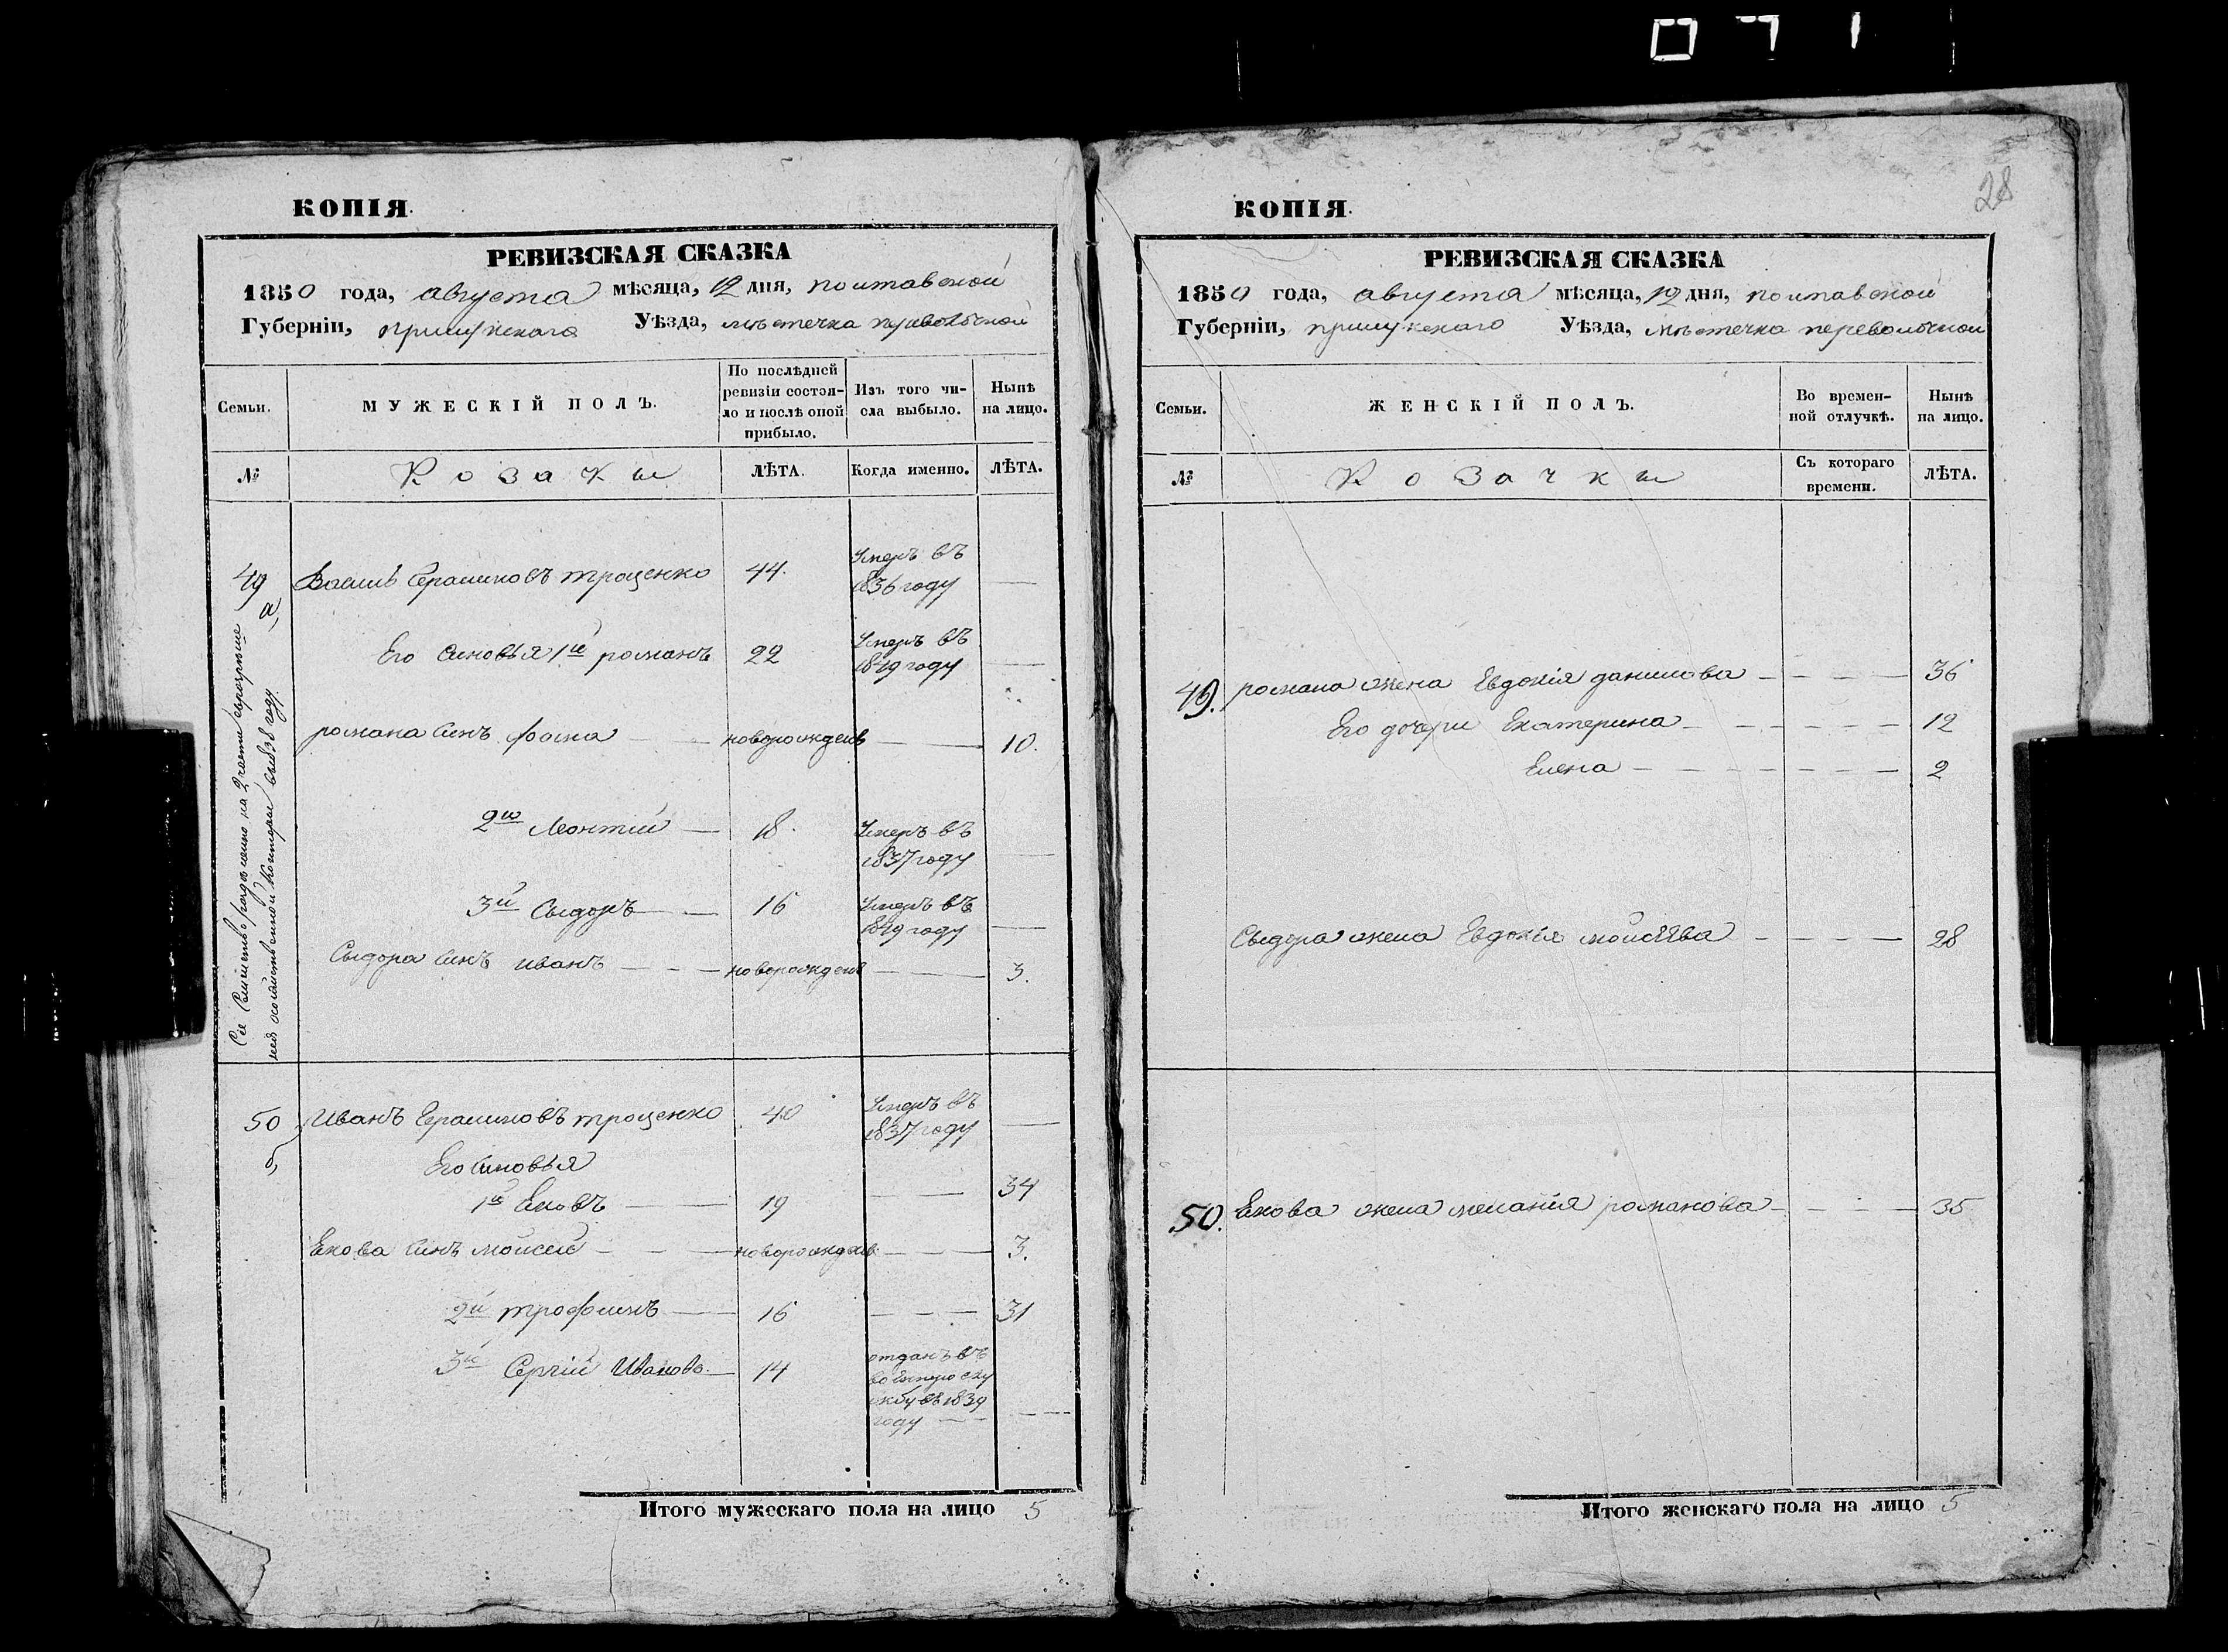 071
КОПІЯ.
РЕВИЗСКАЯ СКАЗКА
1850 года, августа мѣсяца, 12 дня, полтавской
Губерніи, прилукскаго Уѣзда, мѣстечка переволочной
Семьи.
МУЖЕСКІЙ ПОЛЪ.
По послѣдней ревизіи состояло и послѣ оной прибыло.
Изъ того числа выбыло.
Нынѣ на лицо.
№
Козаки
ЛѢТА.
Когда именно.
ЛѢТА.
49 а, Василь Герасимовъ троценко 44. Умеръ въ 1836 году —
Его синовья 1й романъ 22 Умеръ въ 1849 году —
романа синъ фома — новорожденъ — 10.
2й Леонтий — 18. Умеръ въ 1837 году —
3й Сыдоръ — 16 Умеръ въ 1849 году —
Сыдора синъ иванъ — новорожденъ — 3.
Сіе Семейство раздѣлено на 2 части
въ 1838 году
50 б, Иванъ Герасимовъ троценко 40 Умеръ въ 1837 году —
Его синовья
1й Яковъ — 19 — 34
Якова синъ моисей — новорожден. — 3.
2й трофимъ — 16 — 31
3й Сергій Ивановъ — 14 отданъ въ военную службу въ 1839 году —
Итого мужескаго пола на лицо 5
28
КОПІЯ.
РЕВИЗСКАЯ СКАЗКА
1850 года, августа мѣсяца, 12 дня, полтавской
Губерніи, прилукскаго Уѣзда, мѣстечка переволочной
Семьи.
ЖЕНСКІЙ ПОЛЪ.
Во временной отлучкѣ.
Нынѣ на лицо.
№
Козачки
Съ котораго времени.
ЛѢТА.
49. романа жена Евдокія данилова — 36
Его дочери Екатерина — 12
Елена — 2
Сыдора жена Евдокія моисѣева — 28
50. Якова жена меланія романова — 35
Итого женскаго пола на лицо 5